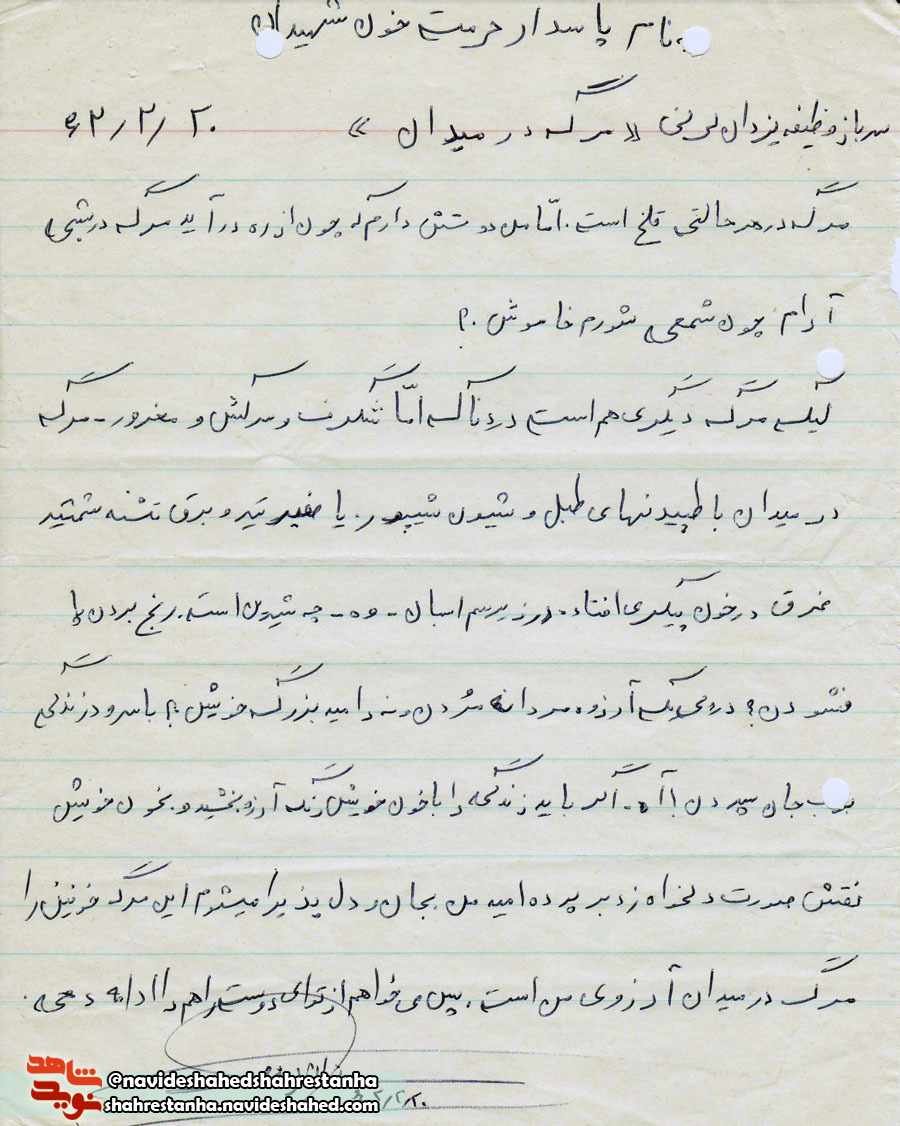 بنام پاسدار حرمت خون شهیدان
سرباز وظیفه یزدان «مرگ در میدان» ۶۲/۲/۲۰
مرگ در هر حالتی تلخ است. امّا من دوستتر دارم که چون از ره در آید مرگ در شبی
آرام چون شمعی شورم خاموش.؟
لیک مرگ دیگری هم است دردناک امّا شگرف و سرکش و مغرور - مرگ
در میدان با طپیدنهای طبل و شیون شیپور. یا صفیر تیر و برق تشنه شمشیر
غرق در خون پیکری افتاده در زیر سم اسبان - وه - چه شیرین است. رنج بردن پا
فشردن؟ در ره یک آرزو مردانه مُردن وندا امید بزرگ خویش؟ با سرود زندگی
بر لب جان سپردن! آه - اگر باید زندگی را با خون خویش رنگ آرزو بخشید و بخون خویش
نقش صورت دلخواه زد بر پرده امید من بجان و دل پذیرا میشوم این مرگ خونین را
مرگ در میدان آرزوی من است. پس می خواهم از تو ای دوست راهم را ادامه دهی.
۶۲/۲/۲۰
شاهد نوید
@navideshahedshahrestanha
shahrestanha.navideshahed.com